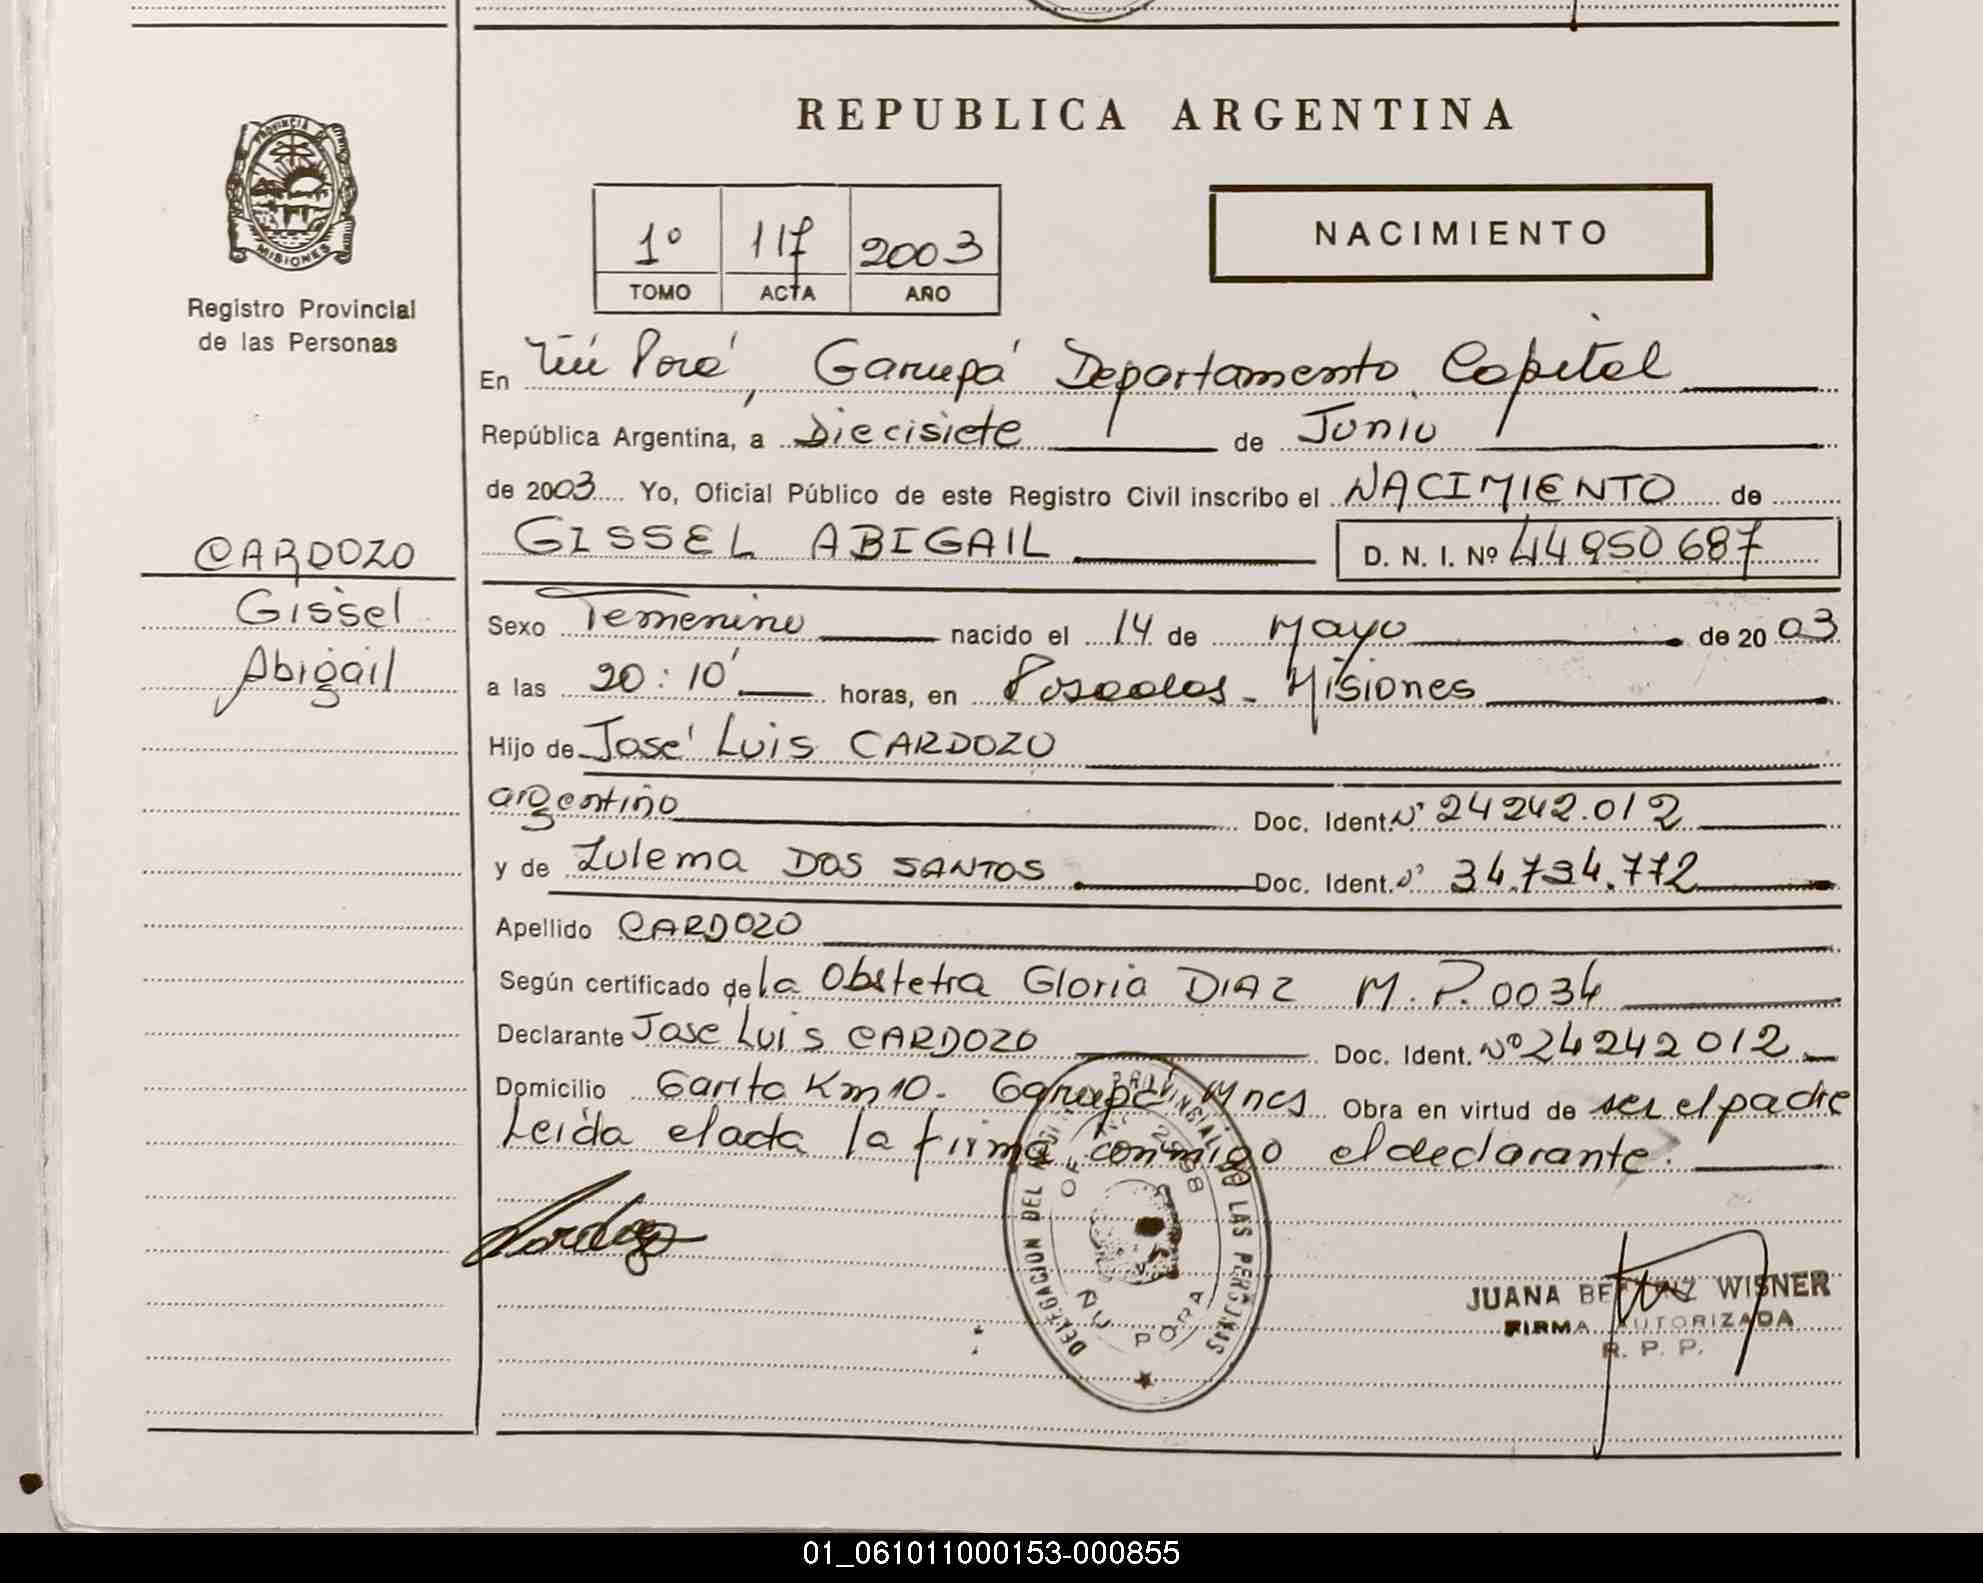 REPUBLICA ARGENTINA
PROVINCIA DE MISIONES
Registro Provincial
de las Personas
NACIMIENTO
1º 117 2003
TOMO ACTA AÑO
En Ñú Porá, Garupá Departamento Capital
República Argentina, a Diecisiete de Junio
de 2003 Yo, Oficial Público de este Registro Civil inscribo el NACIMIENTO de
GISSEL ABIGAIL D. N. I. Nº 44950687
CARDOZO
Gissel
Abigail
Sexo Femenino nacido el 14 de Mayo de 2003
a las 20:10' horas, en Posadas - Misiones
Hijo de José Luis CARDOZO
argentino Doc. Ident. Nº 24242.012
y de Zulema DOS SANTOS Doc. Ident. Nº 34.734.772
Apellido CARDOZO
Según certificado de la Obstetra Gloria DIAZ M.P. 0034
Declarante Jose Luis CARDOZO Doc. Ident. Nº 24242012
Domicilio Garita Km 10. Garupá Mnes Obra en virtud de ser el padre
Leida el acta la firma conmigo el declarante.
Cardozo
DELEGACION DEL REGISTRO PROVINCIAL DE LAS PERSONAS
ÑU PORA
JUANA BEATRIZ WISNER
FIRMA AUTORIZADA
R. P. P.
01_061011000153-000855